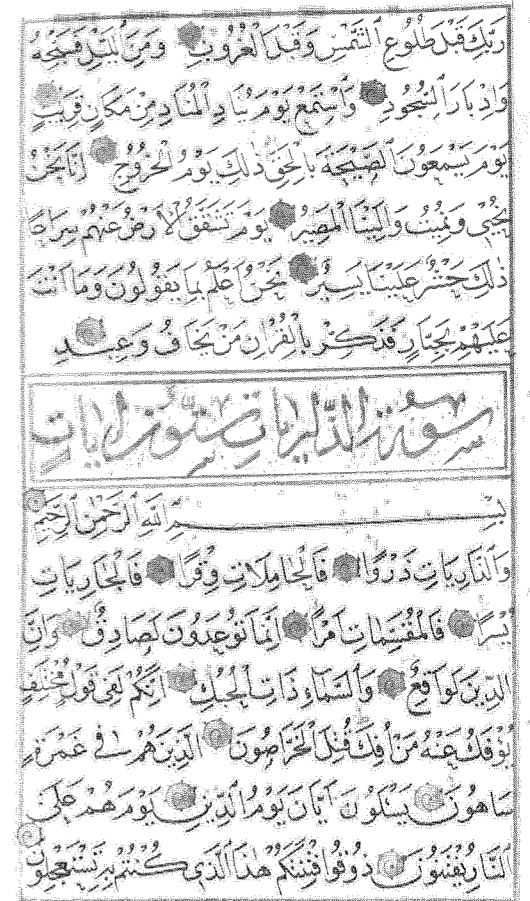 رَبِّكَ قَبْلَ طُلُوعِ الشَّمْسِ وَقَبْلَ الْغُرُوبِ وَمِنَ اللَّيْلِ فَسَبِّحْهُ
وَاَدْبَارَ السُّجُودِ وَاسْتَمِعْ يَوْمَ يُنَادِ الْمُنَادِ مِنْ مَكَانٍ قَرِيبٍ
يَوْمَ يَسْمَعُونَ الصَّيْحَةَ بِالْحَقِّ ذٰلِكَ يَوْمُ الْخُرُوجِ اِنَّا نَحْنُ
نُحْيِى وَنُمِيتُ وَاِلَيْنَا الْمَصِيرُ يَوْمَ تَشَقَّقُ الْاَرْضُ عَنْهُمْ سِرَاعًا
ذٰلِكَ حَشْرٌ عَلَيْنَا يَسِيرٌ نَحْنُ اَعْلَمُ بِمَا يَقُولُونَ وَمَا اَنْتَ
عَلَيْهِمْ بِجَبَّارٍ فَذَكِّرْ بِالْقُرْاٰنِ مَنْ يَخَافُ وَعِيدِ
سورة الذاريات ستون ايات
بِسْمِ اللّٰهِ الرَّحْمٰنِ الرَّحِيمِ
وَالذَّارِيَاتِ ذَرْوًا فَالْحَامِلَاتِ وِقْرًا فَالْجَارِيَاتِ
يُسْرًا فَالْمُقَسِّمَاتِ اَمْرًا اِنَّمَا تُوعَدُونَ لَصَادِقٌ وَاِنَّ
الدِّينَ لَوَاقِعٌ وَالسَّمَاءِ ذَاتِ الْحُبُكِ اِنَّكُمْ لَفِى قَوْلٍ مُخْتَلِفٍ
يُؤْفَكُ عَنْهُ مَنْ اُفِكَ قُتِلَ الْخَرَّاصُونَ الَّذِينَ هُمْ فِى غَمْرَةٍ
سَاهُونَ يَسْئَلُونَ اَيَّانَ يَوْمُ الدِّينِ يَوْمَ هُمْ عَلَى
النَّارِ يُفْتَنُونَ ذُوقُوا فِتْنَتَكُمْ هٰذَا الَّذِى كُنْتُمْ بِهِ تَسْتَعْجِلُونَ